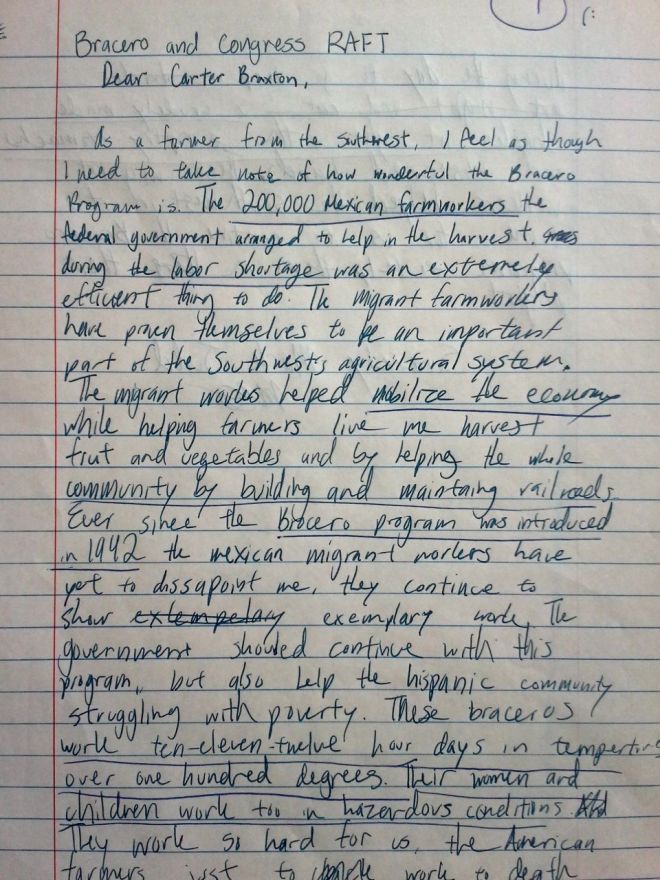 1
Bracero and Congress RAFT
Dear Carter Braxton,
As a farmer from the Southwest, I feel as though
I need to take note of how wonderful the Bracero
Program is. The 200,000 Mexican farmworkers the
federal government arranged to help in the harvest,
during the labor shortage was an extremely
efficient thing to do. The migrant farmworkers
have proven themselves to be an important
part of the Southwest's agricultural system.
The migrant workes helped mobilize the economy
while helping farmers live me harvest
friut and vegetables and by helping the whole
community by building and maintaing railroads.
Ever since the Bracero program was introduced
in 1942 the mexican migrant workers have
yet to dissapoint me, they continue to
show extempelary exemplary work. The
government showled continue with this
program, but also help the hispanic community
struggling with poverty. These braceros
work ten-eleven-twelve hour days in tempertures
over one hundred degrees. Their women and
children work too in hazerdous conditions.
They work so hard for us, the American
farmers just to work to death